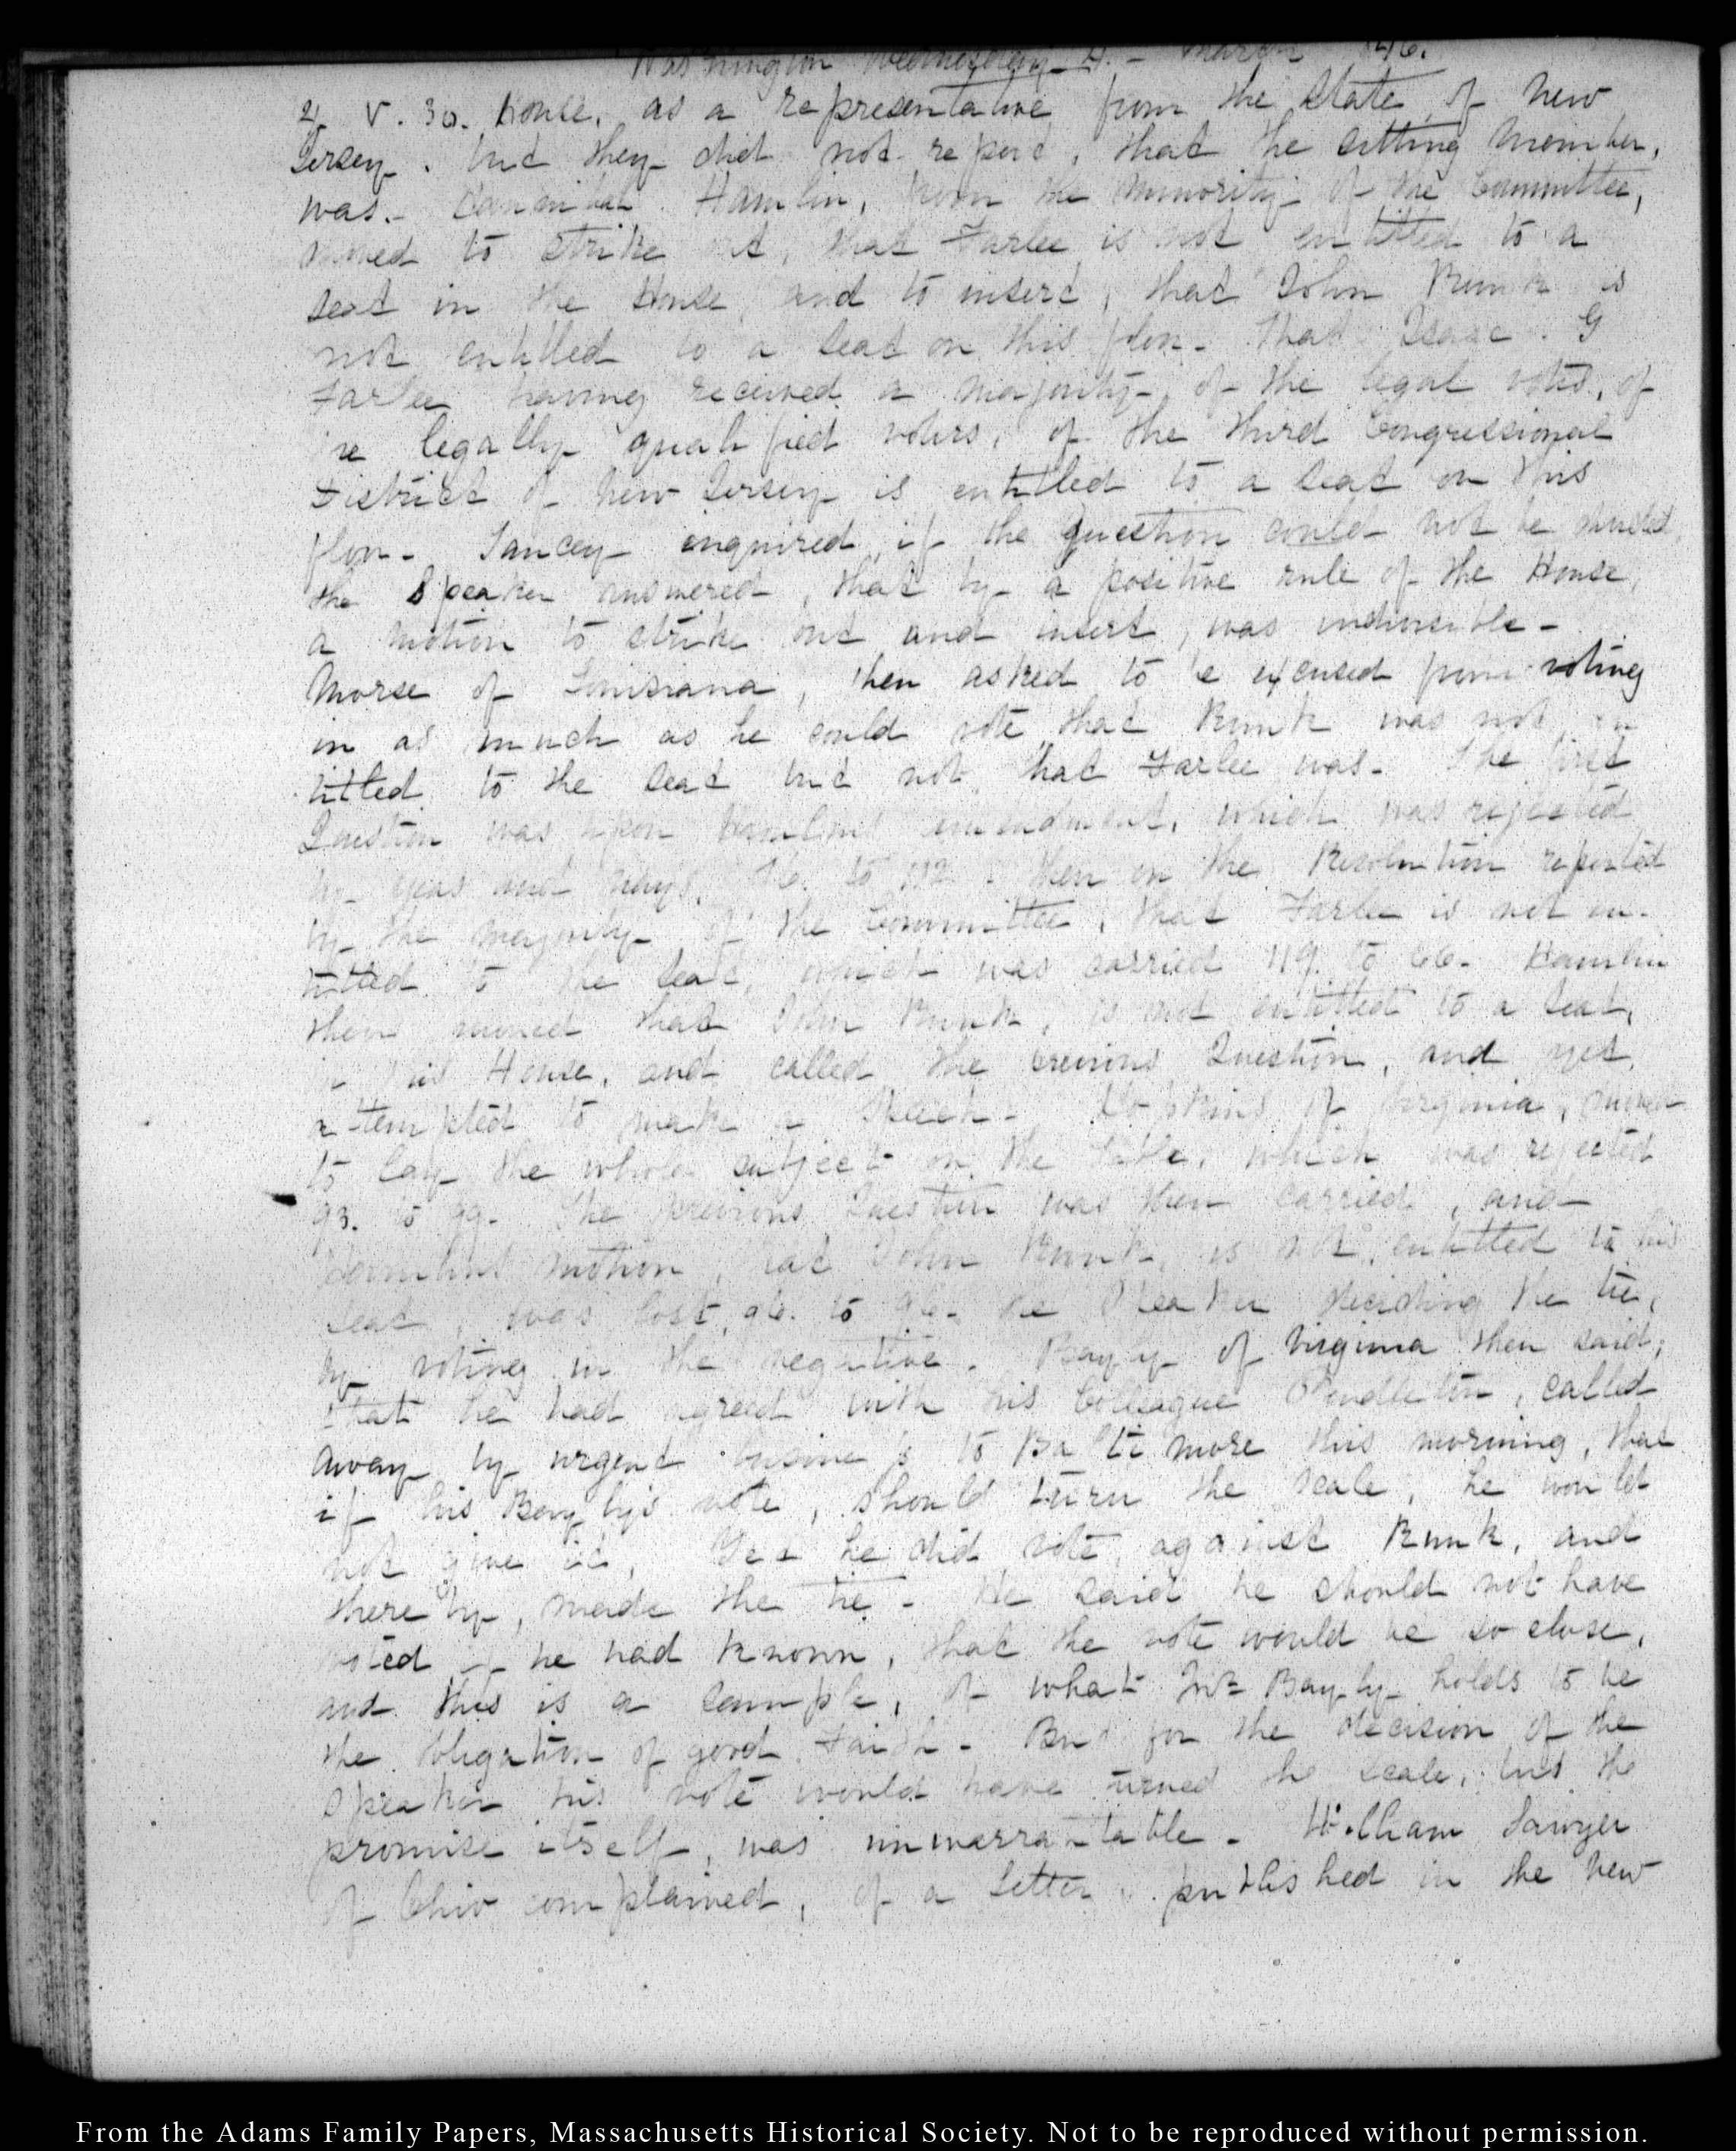 Washington Wednesday 4. - March 1846.
4 V. 30. House, as a representative from the State of New
Jersey. but they did not report, that the sitting member,
was. - Hamlin, from the minority of the Committee,
moved to strike out, that Farlee is not entitled to a
seat in the House and to insert, that John Runk is
not entitled to a seat on this floor - That Isaac. G
Farlee having received a majority of the legal votes, of
the legally qualified voters, of the third Congressional
District of New Jersey is entitled to a seat on this
floor - Yancey inquired, if the question could not be divided,
the Speaker answered, that by a positive rule of the House,
a motion to strike out and insert, was indivisible -
Morse of Louisiana, then asked to be excused from voting
in as much as he could vote that Runk was not en
titled to the seat but not that Farlee was - The first
Question was upon Hamlins amendment, which was rejected
by yeas and nays, to 112. then on the Resolution reported
by the majority of the Committee, that Farlee is not en-
titled to the seat, which was carried 119. to 66 - Hamlin
then moved that John Runk, is not entitled to a seat,
in this House, and called the previous Question, and yet
attempted to make a Speech - Hopkins of Virginia, moved
to lay the whole subject on the table, which was rejected
93. to 99 - The previous Question was then carried, and
Hamlins motion, that John Runk, is not entitled to his
seat, was lost, 96. to 96 - the Speaker deciding the tie,
by voting in the negative. Bayly of Virginia then said;
that he had agreed with his Colleague Pendleton, called
away by urgent business to Baltimore this morning, that
if his Bayly's vote, should turn the scale, he would
not give it, Yet he did vote, against Runk, and
thereby, made the tie - He said he should not have
voted if he had known, that the vote would be so close,
and this is a sample, of what Mr Bayly holds to be
the obligation of good Faith - But for the decision of the
Speaker his vote would have turned the scale, but the
promise itself, was unwarrantable - William Sawyer
of Ohio complained, of a letter, published in the New
From the Adams Family Papers, Massachusetts Historical Society. Not to be reproduced without permission.